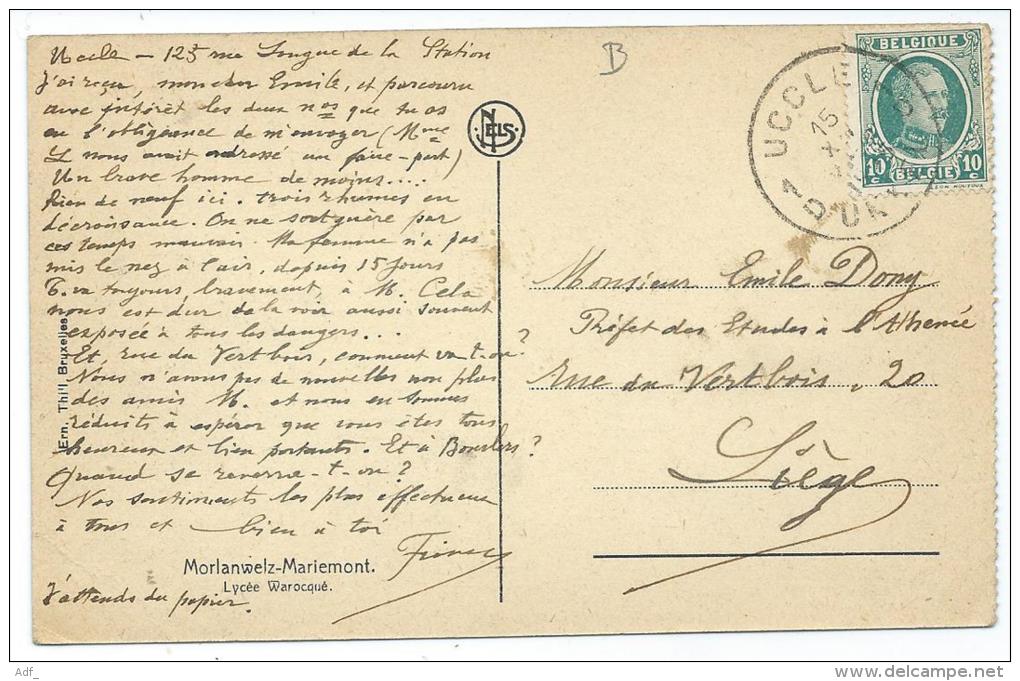 Uccle - 123 rue Longue de la Station
J'ai reçu, mon cher Emile, et parcouru
avec intérêt les deux nos que tu as
eu l'obligeance de m'envoyer (Mme
L nous avait adressé un faire-part)
Un brave homme de moins....
Rien de neuf ici. trois rhumes en
décroissance. On ne sort guère par
ces temps mauvais. Ma femme n'a pas
mis le nez à l'air, depuis 15 jours
T. va toujours bravement, à M. Cela
nous est dur de la voir aussi souvent
exposée à tous les dangers...
Et, rue du Vertbois, comment va-t-on?
Nous n'avons pas de nouvelles non plus
des amis M. et nous en sommes
réduits à espérer que vous êtes tous
heureux et bien portants. Et à ?
Quand se reverra-t-on?
Nos sentiments les plus affectueux
à tous et bien à toi
J'attends du papier.
Morlanwelz-Mariemont.
Lycée Warocqué.
Ern. Thill, Bruxelles
NELS
B
UCCLE
15
1
D
UKKEL
BELGIQUE
10 c
BELGIË
10 c
Monsieur Emile Dony
Préfet des Etudes à l'Athénée
rue du Vertbois, 20
Liège
Adf_
www.delcampe.net